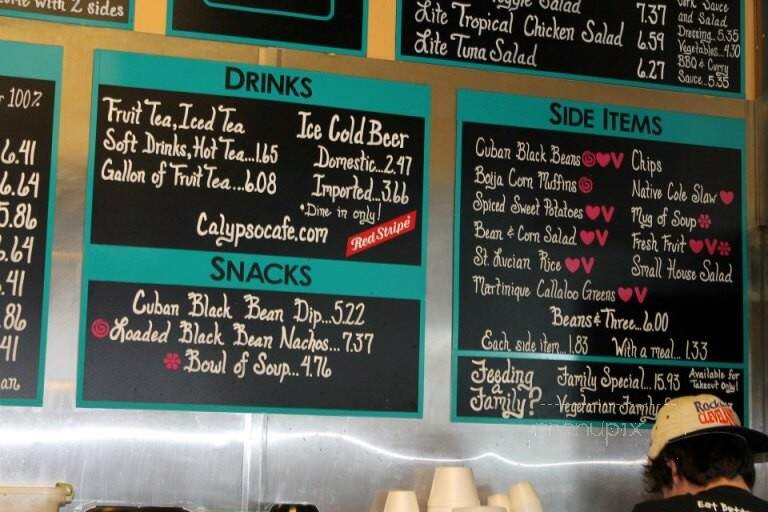 with 2 sides
100%
6.41
6.64
5.86
6.64
.41
.86
41
DRINKS
Fruit Tea, Iced Tea
Soft Drinks, Hot Tea...1.65
Gallon of Fruit Tea...6.08
Ice Cold Beer
Domestic...2.47
Imported...3.66
*Dine in only!
Calypsocafe.com
Red Stripe
SNACKS
Cuban Black Bean Dip...5.22
Loaded Black Bean Nachos...7.37
Bowl of Soup...4.76
Salad 7.37
Lite Tropical Chicken Salad 6.59
Lite Tuna Salad 6.27
Sauce
and Salad
Dressing..5.35
Vegetables..4.30
BBQ & Curry
Sauce...5.35
SIDE ITEMS
Cuban Black Beans V
Boija Corn Muffins
Spiced Sweet Potatoes V
Bean & Corn Salad V
St. Lucian Rice V
Martinique Callaloo Greens V
Chips
Native Cole Slaw
Mug of Soup
Fresh Fruit V
Small House Salad
Beans & Three...6.00
Each side item..1.83 With a meal...1.33
Feeding
a
Family?
Family Special...15.93
Available for
Takeout Only!
Vegetarian Family
menupix
CLEVELAND
Eat